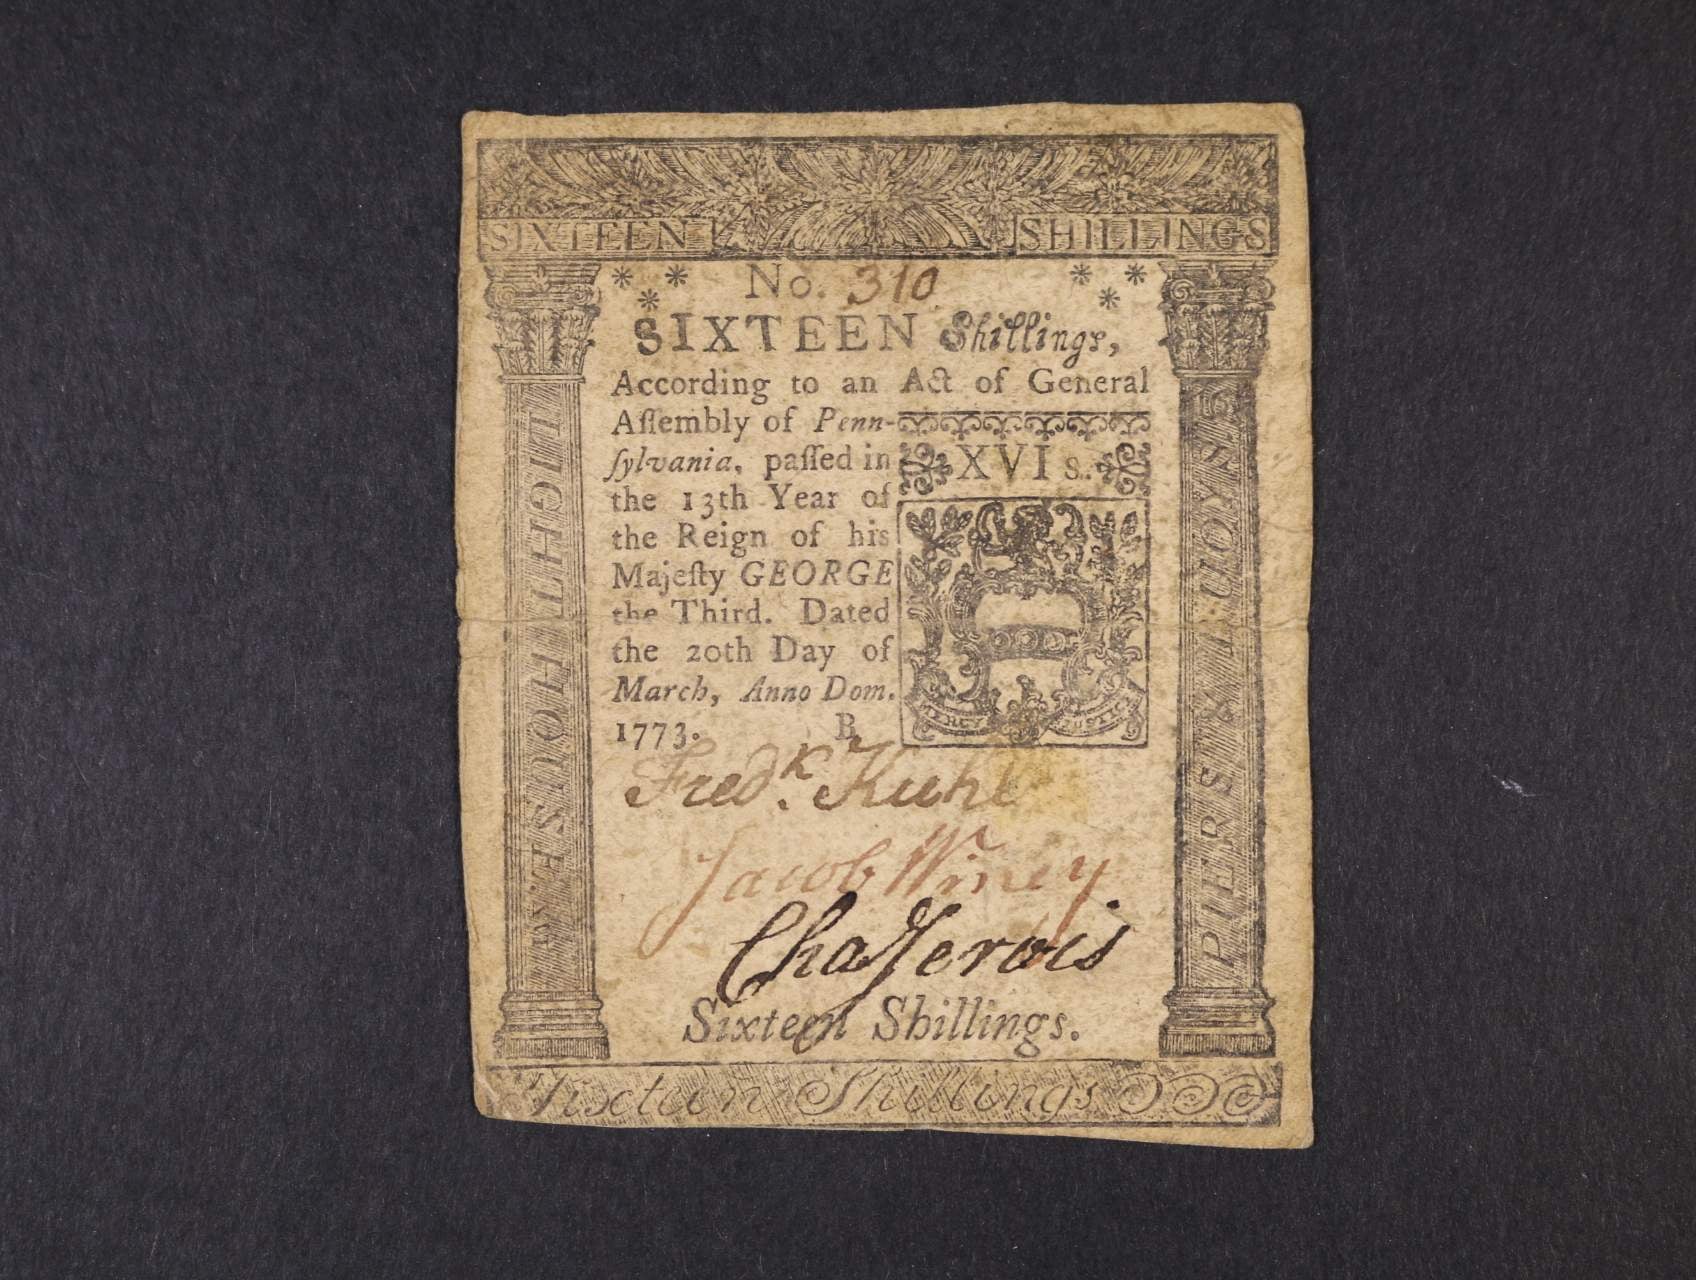 SIXTEEN SHILLINGS
No. 310
SIXTEEN Shillings,
According to an Act of General
Aſſembly of Penn-
ſylvania, paſſed in
the 13th Year of
the Reign of his
Majeſty GEORGE
the Third. Dated
the 20th Day of
March, Anno Dom.
1773. B
XVI s.
MERCY JUSTICE
Fredk. Kuhl
Jacob Winey
Cha Jervis
Sixteen Shillings.
Sixteen Shillings
LIGHT HOUSE
PIERS